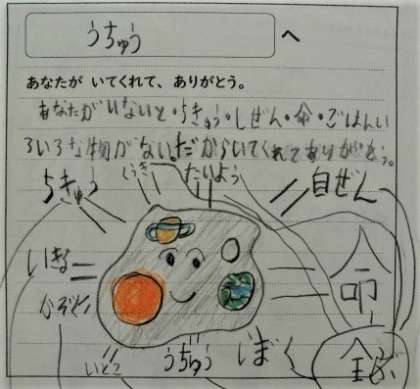 うちゅう へ
あなたが いてくれて、ありがとう。
あなたがいないと・ちきゅう・しぜん・命・ごはんい
ろいろな物がない。だからいてくれてありがとう。
くうき
たいよう
ちきゅう
自ぜん
いきもの
かぞく
命
いとこ
うちゅう
ぼく
全ぶ